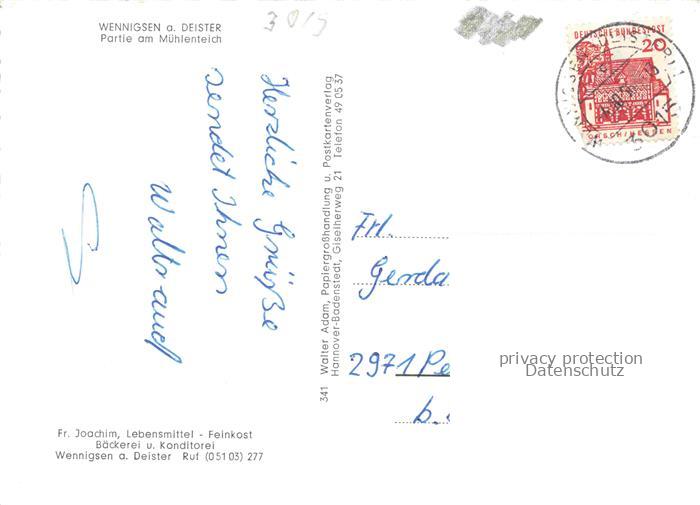 WENNIGSEN a. DEISTER
Partie am Mühlenteich
3
Herzliche Grüße
sendet Ihnen
Waltraud
Fr. Joachim, Lebensmittel - Feinkost
Bäckerei u. Konditorei
Wennigsen a. Deister Ruf (0 51 03) 277
341 Walter Adam, Papiergroßhandlung u. Postkartenverlag
Hannover-Badenstedt, Giselherweg 21 Telefon 49 05 37
DEUTSCHE BUNDESPOST
20
LORSCH/HESSEN
Frl.
Gerda
2971 Pe
b.
privacy protection
Datenschutz